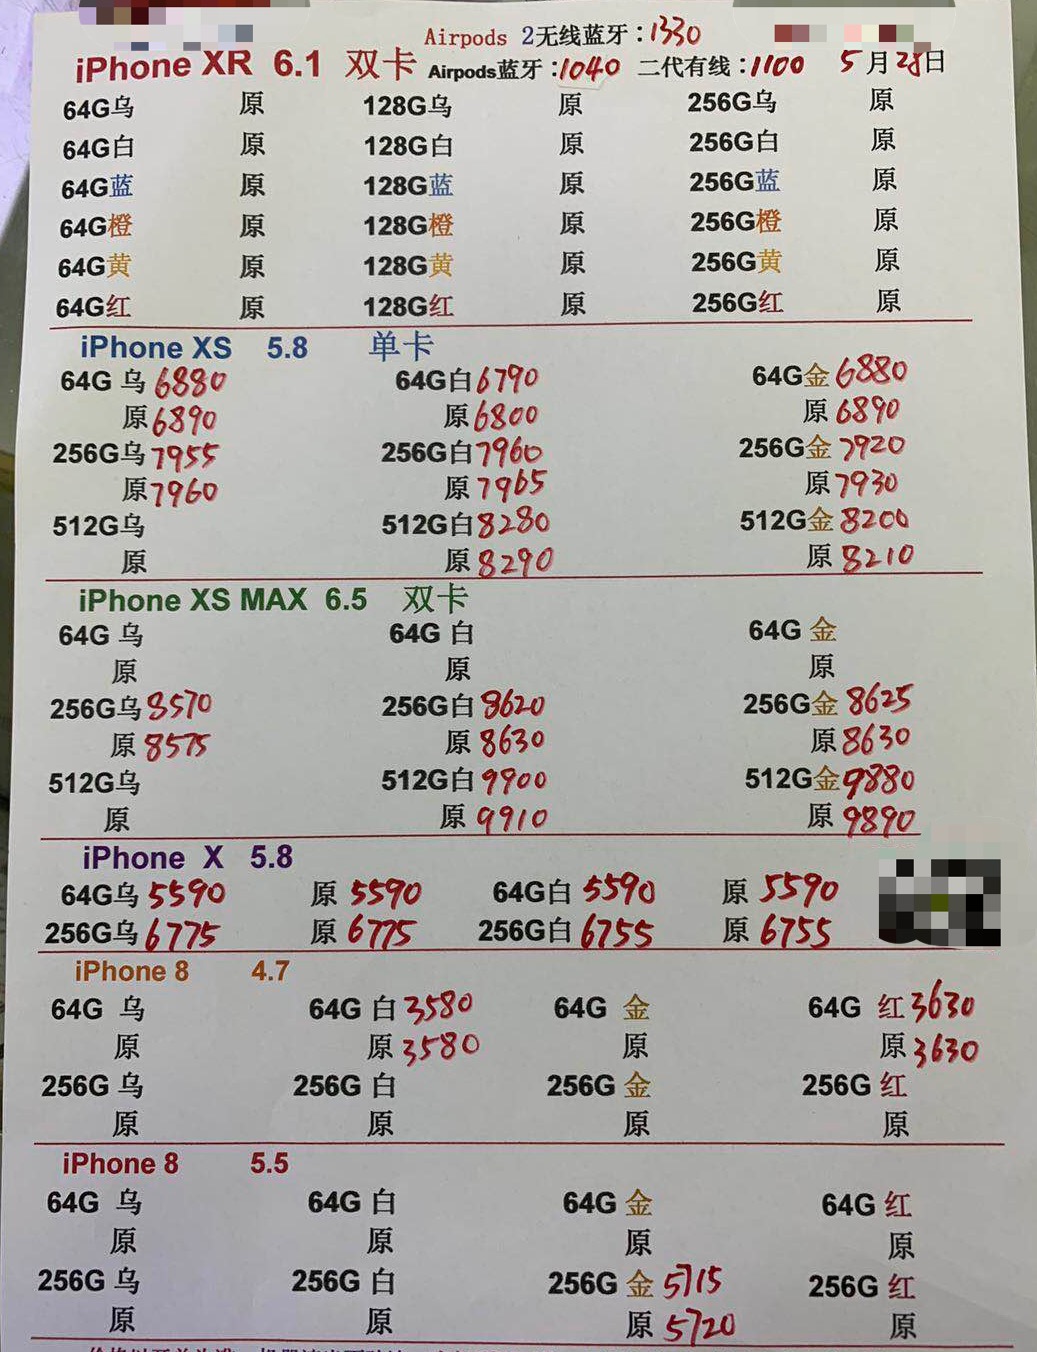 Airpods 2无线蓝牙：1330
iPhone XR 6.1 双卡 Airpods蓝牙：1040 二代有线：1100 5月28日
64G乌 原 128G乌 原 256G乌 原
64G白 原 128G白 原 256G白 原
64G蓝 原 128G蓝 原 256G蓝 原
64G橙 原 128G橙 原 256G橙 原
64G黄 原 128G黄 原 256G黄 原
64G红 原 128G红 原 256G红 原
iPhone XS 5.8 单卡
64G 乌 6880 64G白 6790 64G金 6880
原 6890 原 6800 原 6890
256G乌 7955 256G白 7960 256G金 7920
原 7960 原 7965 原 7930
512G乌 512G白 8280 512G金 8200
原 原 8290 原 8210
iPhone XS MAX 6.5 双卡
64G 乌 64G 白 64G 金
原 原 原
256G乌 8570 256G白 8620 256G金 8625
原 8575 原 8630 原 8630
512G乌 512G白 9900 512G金 9880
原 原 9910 原 9890
iPhone X 5.8
64G乌 5590 原 5590 64G白 5590 原 5590
256G乌 6775 原 6775 256G白 6755 原 6755
iPhone 8 4.7
64G 乌 64G 白 3580 64G 金 64G 红 3630
原 原 3580 原 原 3630
256G 乌 256G 白 256G 金 256G 红
原 原 原 原
iPhone 8 5.5
64G 乌 64G 白 64G 金 64G 红
原 原 原 原
256G 乌 256G 白 256G 金 5715 256G 红
原 原 原 5720 原